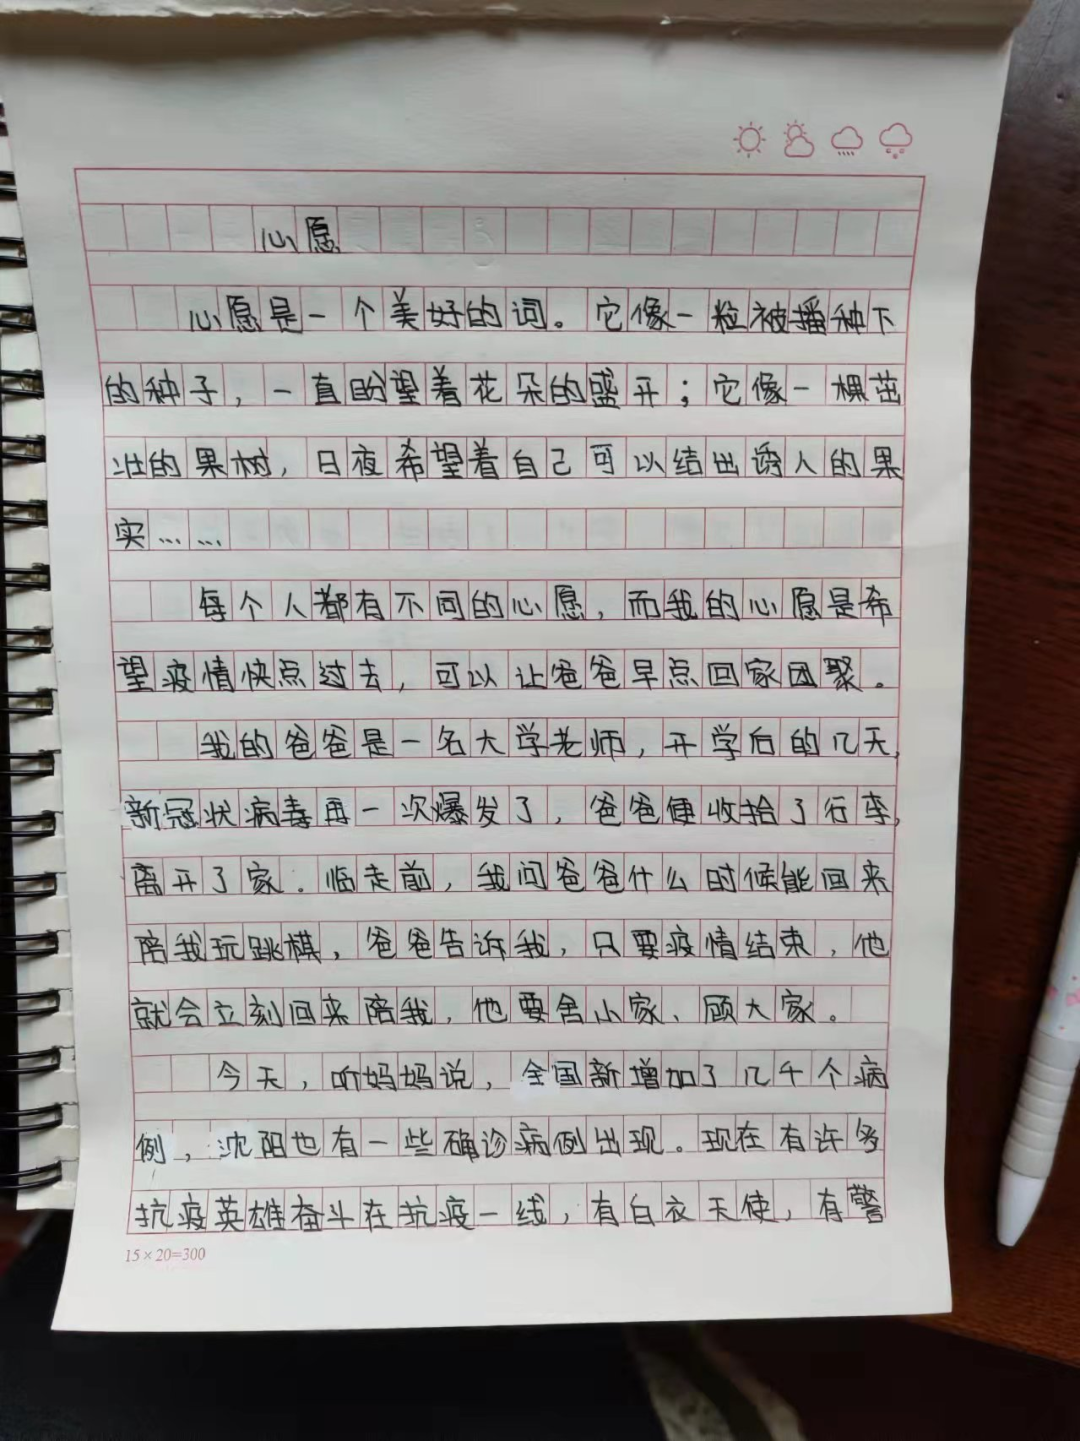 心愿
心愿是一个美好的词。它像一粒被播种下
的种子，一直盼望着花朵的盛开；它像一棵茁
壮的果树，日夜希望着自己可以结出诱人的果
实……
每个人都有不同的心愿，而我的心愿是希
望疫情快点过去，可以让爸爸早点回家团聚。
我的爸爸是一名大学老师，开学后的几天，
新冠状病毒再一次爆发了，爸爸便收拾了行李，
离开了家。临走前，我问爸爸什么时候能回来
陪我玩跳棋，爸爸告诉我，只要疫情结束，他
就会立刻回来陪我，他要舍小家、顾大家。
今天，听妈妈说，全国新增加了几千个病
例，沈阳也有一些确诊病例出现。现在有许多
抗疫英雄奋斗在抗疫一线，有白衣天使，有警
15×20=300